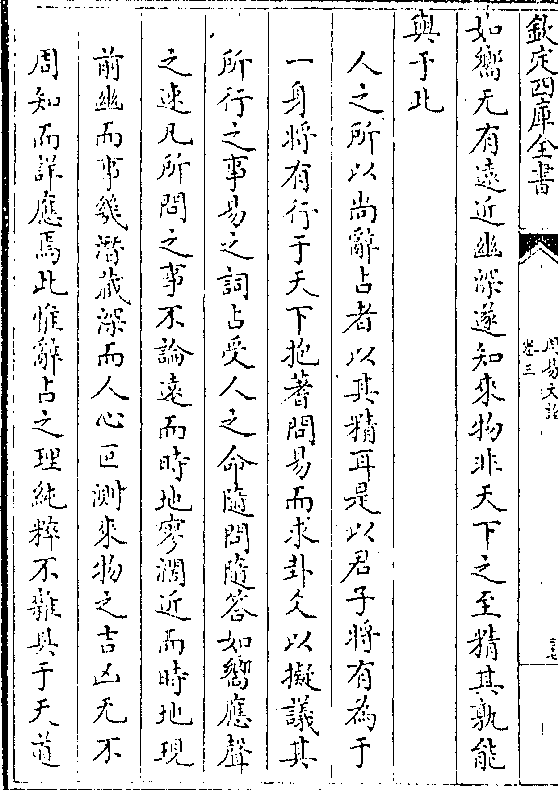 欽定四庫全書
周易文詮
卷三
三十七
如嚮无有遠近幽深遂知來物非天下之至精其孰能
與于此
人之所以尚辭占者以其精耳是以君子將有為于
一身將有行于天下抱蓍問易而求卦爻以擬議其
所行之事易之詞占受人之命隨問隨答如嚮應聲
之速凡所問之事不論遠而時地寥濶近而時地現
前幽而事幾潛藏深而人心叵測來物之吉凶无不
周知而詳應焉此惟辭占之理純粹不雜具于天道